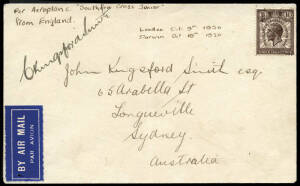 Per Aeroplane "Southern Cross Junior"
From England.
London Oct 9th 1930
Darwin Oct 19th 1930
CKingsford Smith
John Kingsford Smith esq.
65 Arabella St
Longueville
Sydney.
Australia
BY AIR MAIL
PAR AVION